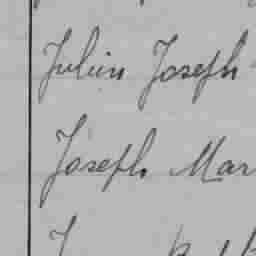 Julien Joseph
Joseph Mar